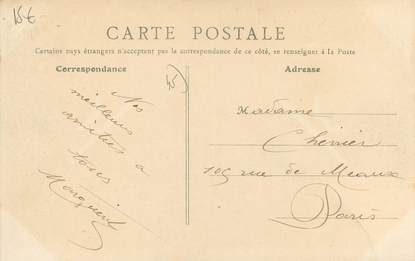 15€
CARTE POSTALE
Certains pays étrangers n'acceptent pas la correspondance de ce côté, se renseigner à la Poste
Correspondance
Adresse
45
Nos
meilleures
amitiés à
tous
Madame
Chenier
105 rue de Meaux
Paris